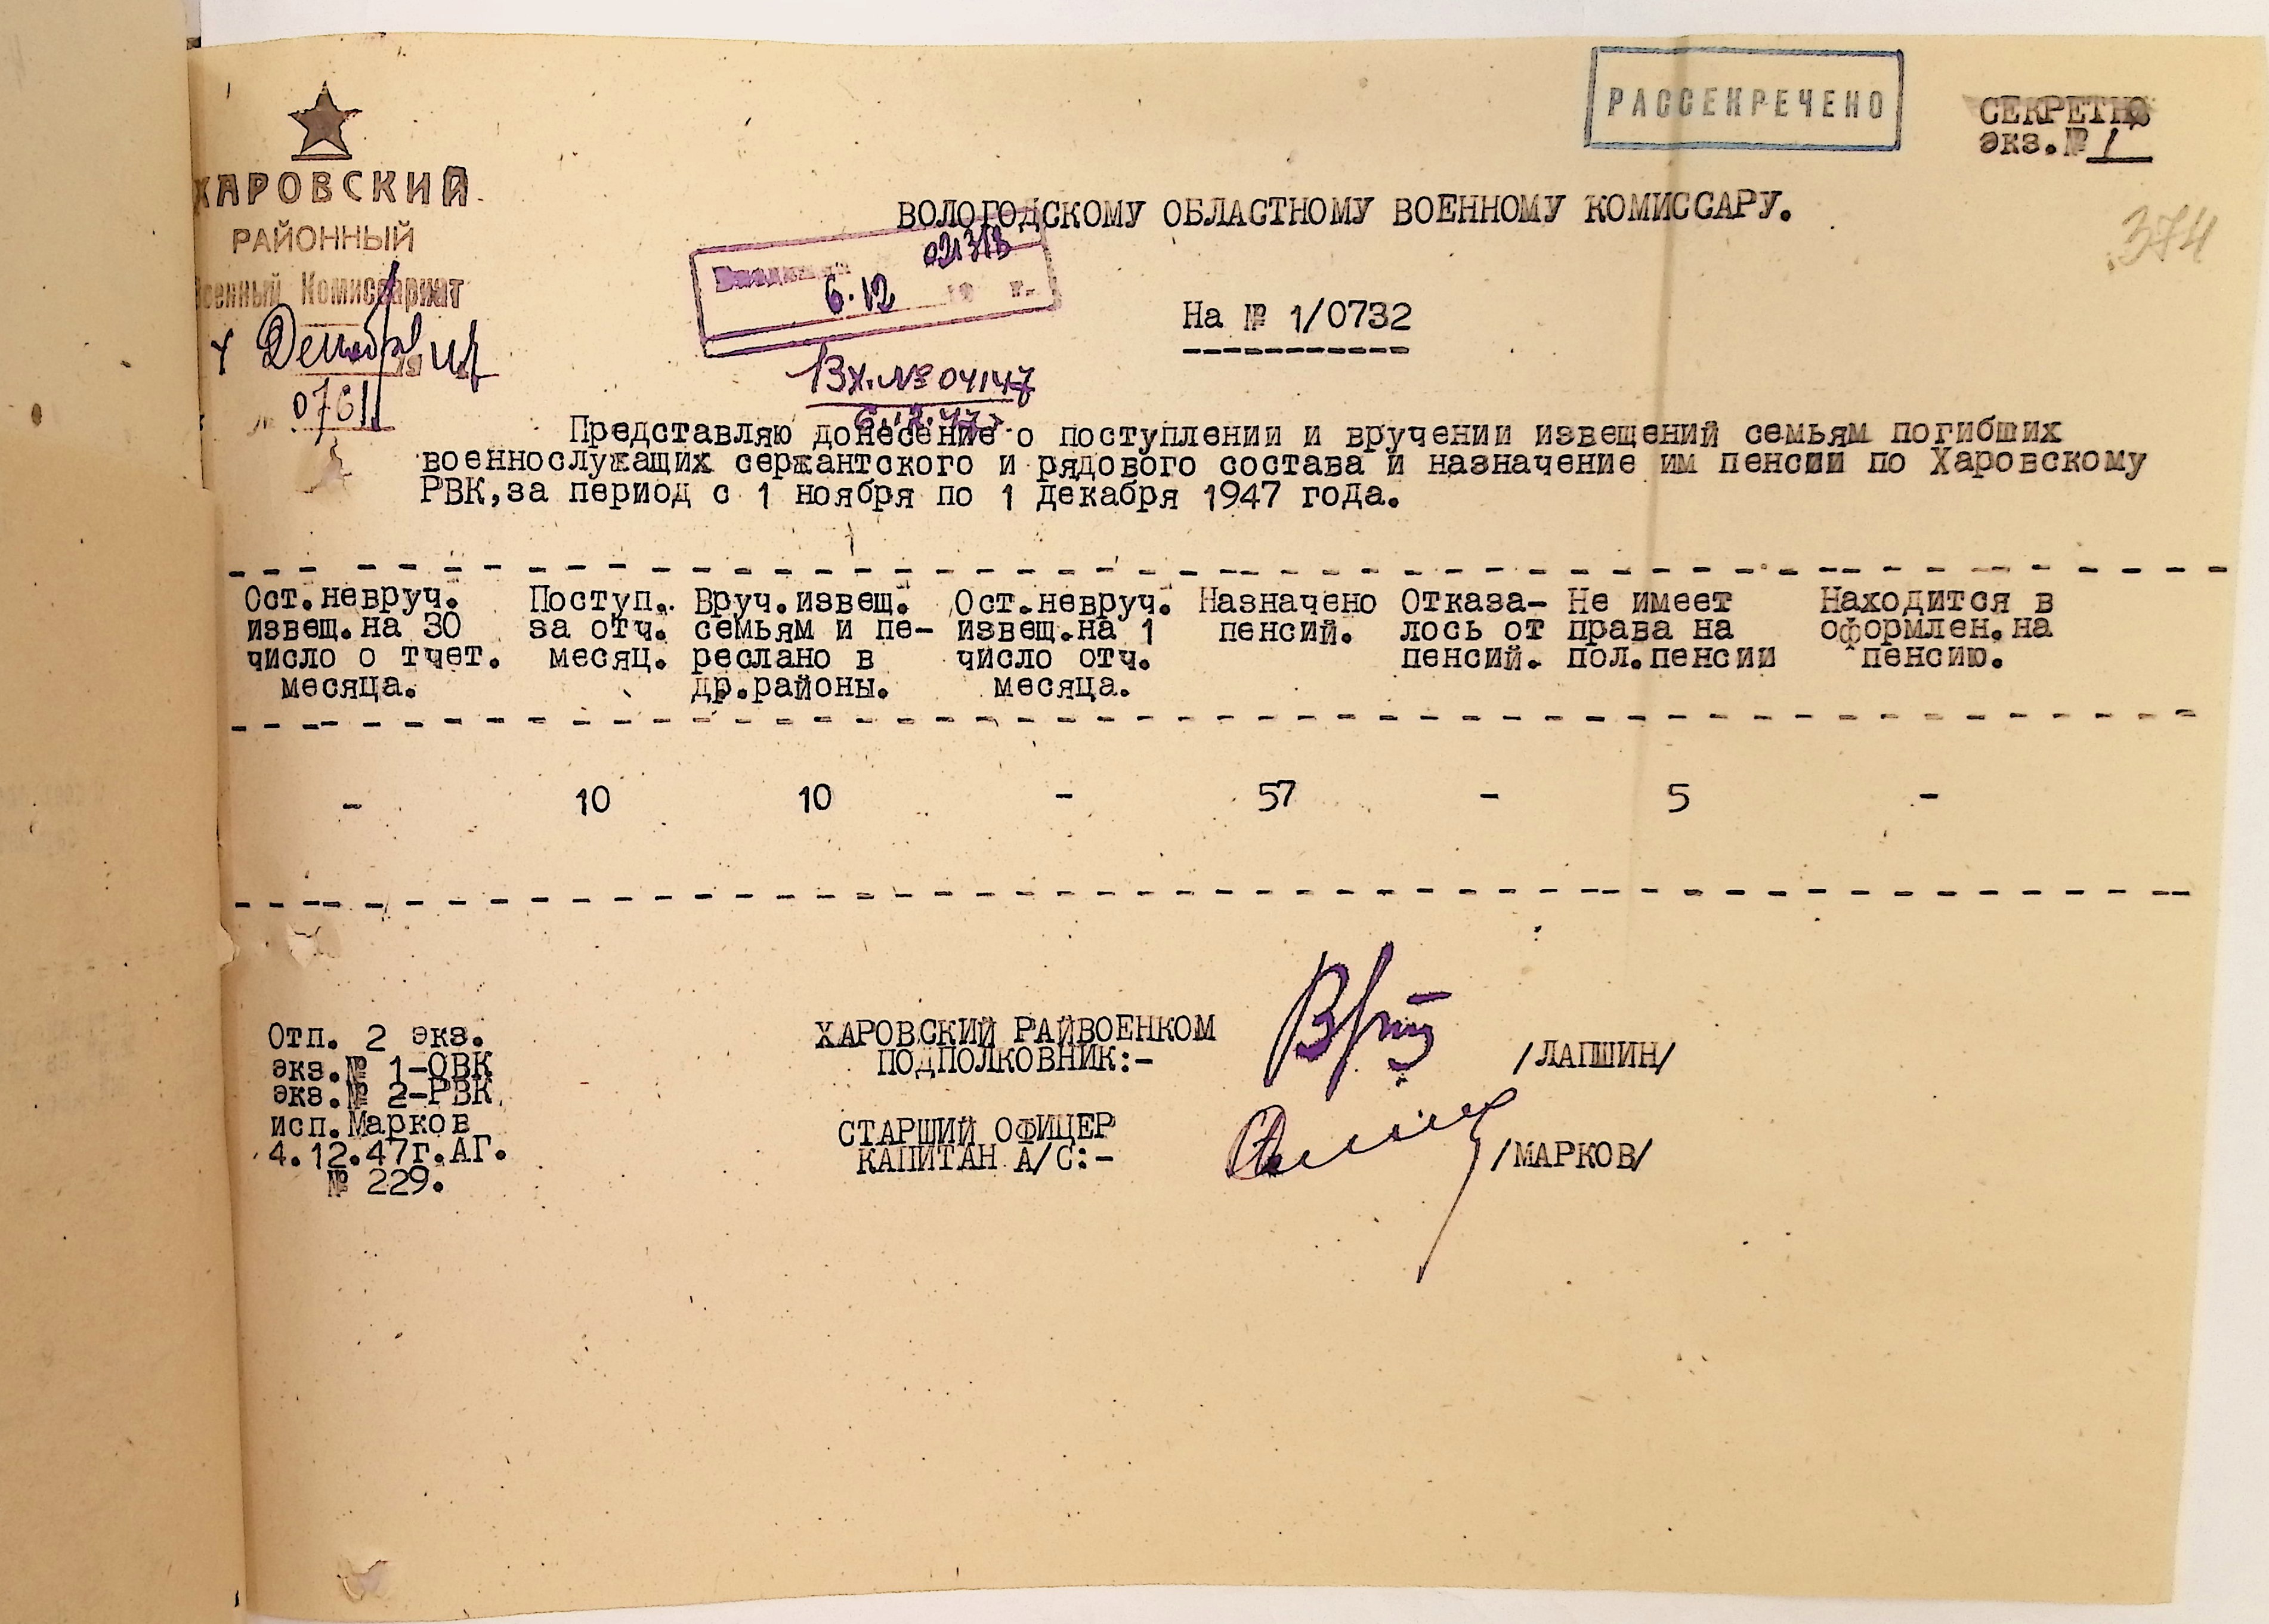 РАССЕКРЕЧЕНО
СЕКРЕТНО
экз.№ 1
374
ХАРОВСКИЙ
РАЙОННЫЙ
Военный Комиссариат
4 Декабря 19 47
ВОЛОГОДСКОМУ ОБЛАСТНОМУ ВОЕННОМУ КОМИССАРУ.
6.12
На № 1/0732
Вх.№ 04147
6.12.47г
Представляю донесение о поступлении и вручении извещений семьям погибших
военнослужащих сержантского и рядового состава и назначение им пенсии по Харовскому
РВК,за период с 1 ноября по 1 декабря 1947 года.
Ост.невруч. Поступ. Вруч.извещ. Ост.невруч. Назначено Отказа- Не имеет Находится в
извещ.на 30 за отч. семьям и пе- извещ.на 1 пенсий. лось от права на оформлен.на
число о тчет. месяц. реслано в число отч. пенсий. пол.пенсии пенсию.
месяца. др.районы. месяца.
- 10 10 - 57 - 5 -
Отп. 2 экз.
экз.№ 1-ОВК
экз.№ 2-РВК
исп.Марков
4.12.47г.АГ.
№ 229.
ХАРОВСКИЙ РАЙВОЕНКОМ
ПОДПОЛКОВНИК:- /ЛАПШИН/
СТАРШИЙ ОФИЦЕР
КАПИТАН А/С:- /МАРКОВ/